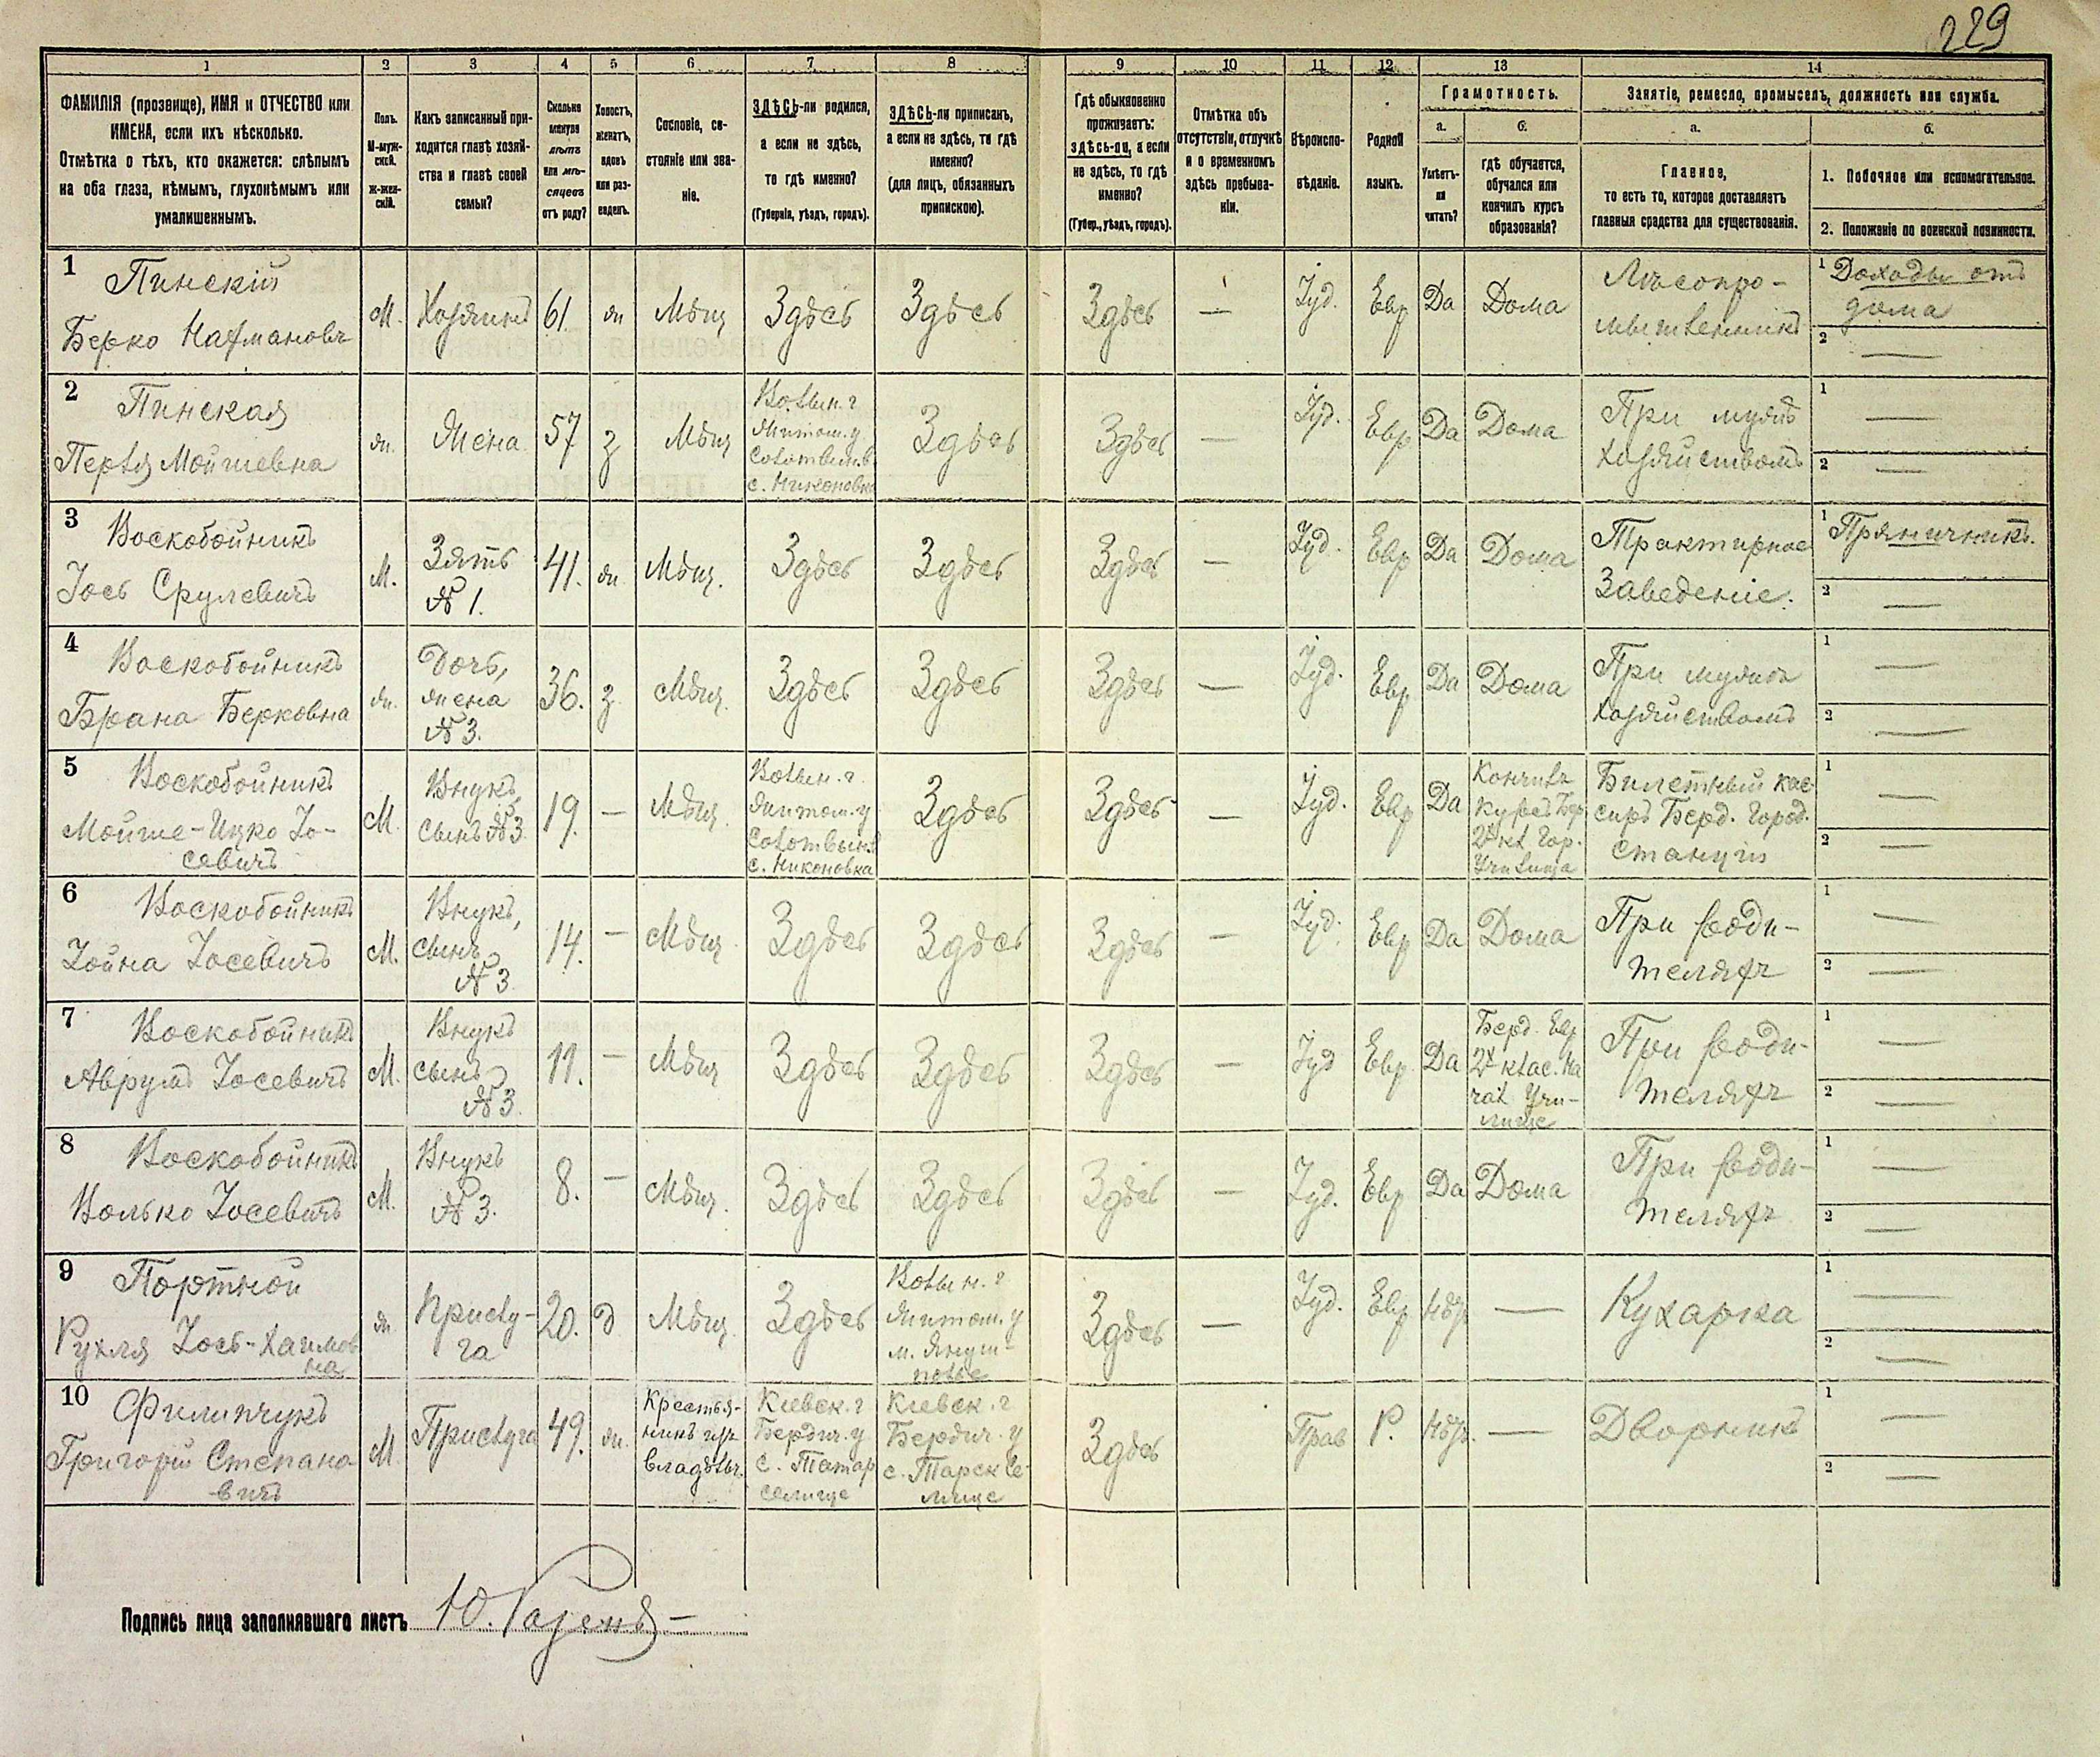 229
1 2 3 4 5 6 7 8 9 10 11 12 13 14
ФАМИЛІЯ (прозвище), ИМЯ и ОТЧЕСТВО или
ИМЕНА, если ихъ нѣсколько.
Отмѣтка о тѣхъ, кто окажется: слѣпымъ
на оба глаза, нѣмымъ, глухонѣмымъ или
умалишеннымъ.
Полъ.
М-муж-
ской.
Ж-жен-
скій.
Какъ записанный при-
ходится главѣ хозяй-
ства и главѣ своей
семьи?
Сколько
минуло
лѣтъ
или мѣ-
сяцевъ
отъ роду?
Холостъ,
женатъ,
вдовъ
или раз-
веденъ.
Сословіе, со-
стояніе или зва-
ніе.
ЗДѢСЬ-ли родился,
а если не здѣсь,
то гдѣ именно?
(Губернія, уѣздъ, городъ).
ЗДѢСЬ-ли приписанъ,
а если не здѣсь, то гдѣ
именно?
(для лицъ, обязанныхъ
припискою).
Гдѣ обыкновенно
проживаетъ:
здѣсь-ли, а если
не здѣсь, то гдѣ
именно?
(Губер., уѣздъ, городъ).
Отмѣтка объ
отсутствіи, отлучкѣ
и о временномъ
здѣсь пребыва-
ніи.
Вѣроиспо-
вѣданіе.
Родной
языкъ.
Грамотность.
а.
Умѣетъ-
ли
читать?
б.
гдѣ обучается,
обучался или
кончилъ курсъ
образованія?
Занятіе, ремесло, промыселъ, должность или служба.
а.
Главное,
то есть то, которое доставляетъ
главныя средства для существованія.
б.
1. Побочное или вспомогательное.
2. Положеніе по воинской повинности.
1 Пинскій
Берко Нахмановъ
М. Хозяинъ 61. ж Мѣщ Здѣсь Здѣсь Здѣсь — Іуд. Евр Да Дома
Лѣсопро-
мышленникъ
1 Доходы отъ
дома
2 —
2 Пинская
Перля Мойшевна
ж. Жена 57 з Мѣщ
Волын. г
Житом. у
Солотвин. в
с. Никоновка
Здѣсь Здѣсь — Іуд. Евр Да Дома
При мужѣ
хозяйствомъ
1 —
2 —
3 Воскобойникъ
Іось Срулевичъ
М. Зять
№ 1.
41. ж Мѣщ. Здѣсь Здѣсь Здѣсь — Іуд. Евр Да Дома
Трактирное
Заведеніе.
1 Пряничникъ.
2 —
4 Воскобойникъ
Брана Берковна
ж. Дочь,
жена
№ 3.
36. з. Мѣщ. Здѣсь Здѣсь Здѣсь — Іуд. Евр Да Дома
При мужѣ
хозяйствомъ
1 —
2 —
5 Воскобойникъ
Мойше-Ицко Іо-
севичъ
М. Внукъ,
сынъ № 3
19. — Мѣщ.
Волын. г.
Житом. у
Солотвин. в
с. Никоновка
Здѣсь Здѣсь — Іуд. Евр Да
Кончилъ
курсъ Бер
2хъ кл. Гор.
Училища
Билетный кас-
сиръ Берд. Город.
станціи
1 —
2 —
6 Воскобойникъ
Іойна Іосевичъ
М. Внукъ,
сынъ
№ 3
14. — Мѣщ. Здѣсь Здѣсь Здѣсь — Іуд. Евр Да Дома
При роди-
теляхъ
1 —
2 —
7 Воскобойникъ
Аврумъ Іосевичъ
М. Внукъ
сынъ
№ 3.
11. — Мѣщ Здѣсь Здѣсь Здѣсь — Іуд Евр. Да
Берд. Евр
2х клас. На
чал Учи-
лище
При роди-
теляхъ
1 —
2 —
8 Воскобойникъ
Волько Іосевичъ
М. Внукъ
№ 3.
8. — Мѣщ. Здѣсь Здѣсь Здѣсь — Іуд. Евр Да Дома
При роди-
теляхъ
1 —
2 —
9 Портной
Рухля Іось-Хаимов
на
ж Прислу-
га
20. д Мѣщ. Здѣсь
Волын. г
Житом. у
м. Януш-
полье
Здѣсь — Іуд. Евр Нѣтъ — Кухарка
1 —
2 —
10 Филипчукъ
Григорій Степано-
вичъ
М. Прислуга 49. ж.
Крестья-
нинъ изъ
владѣлч.
Кіевск. г
Бердич. у
с. Татар
селище
Кіевск. г
Бердич. у
с. Тарск Се-
лище
Здѣсь Прав Р. Нѣтъ. — Дворникъ
1 —
2 —
Подпись лица заполнявшаго листъ